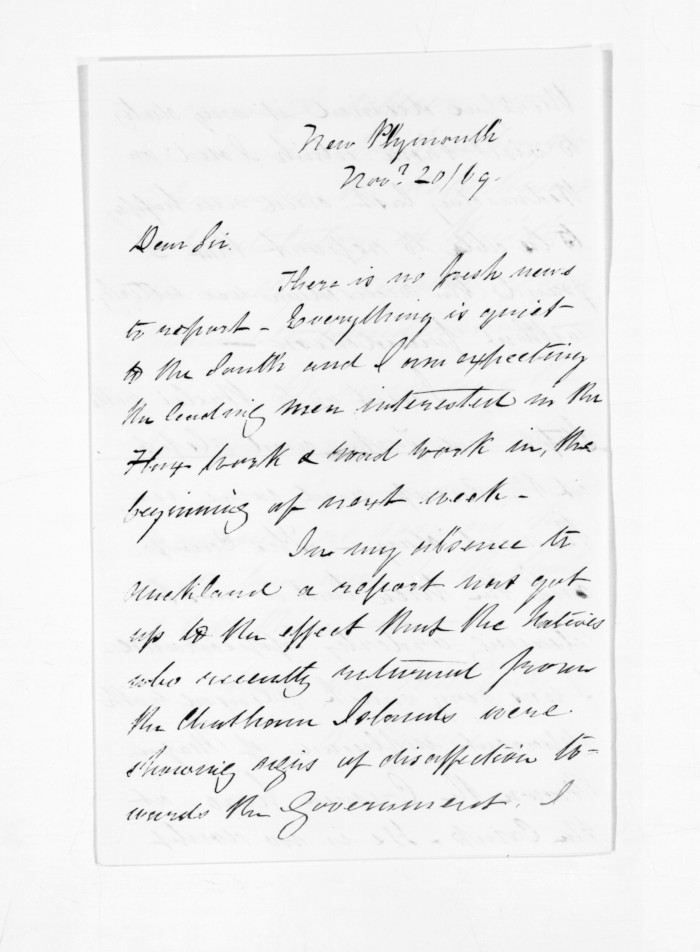 New Plymouth
Novr 20/69.
Dear Sir.
There is no fresh news
to report - Everything is quiet
to the South and I am expecting
the leading men interested in the
Flax work & road work in, the
beginning of next week -
In my absence to
Auckland a report was got
up to the effect that the Natives
who recently returned from
the Chatham Islands were
showing signs of disaffection to-
wards the Government. I